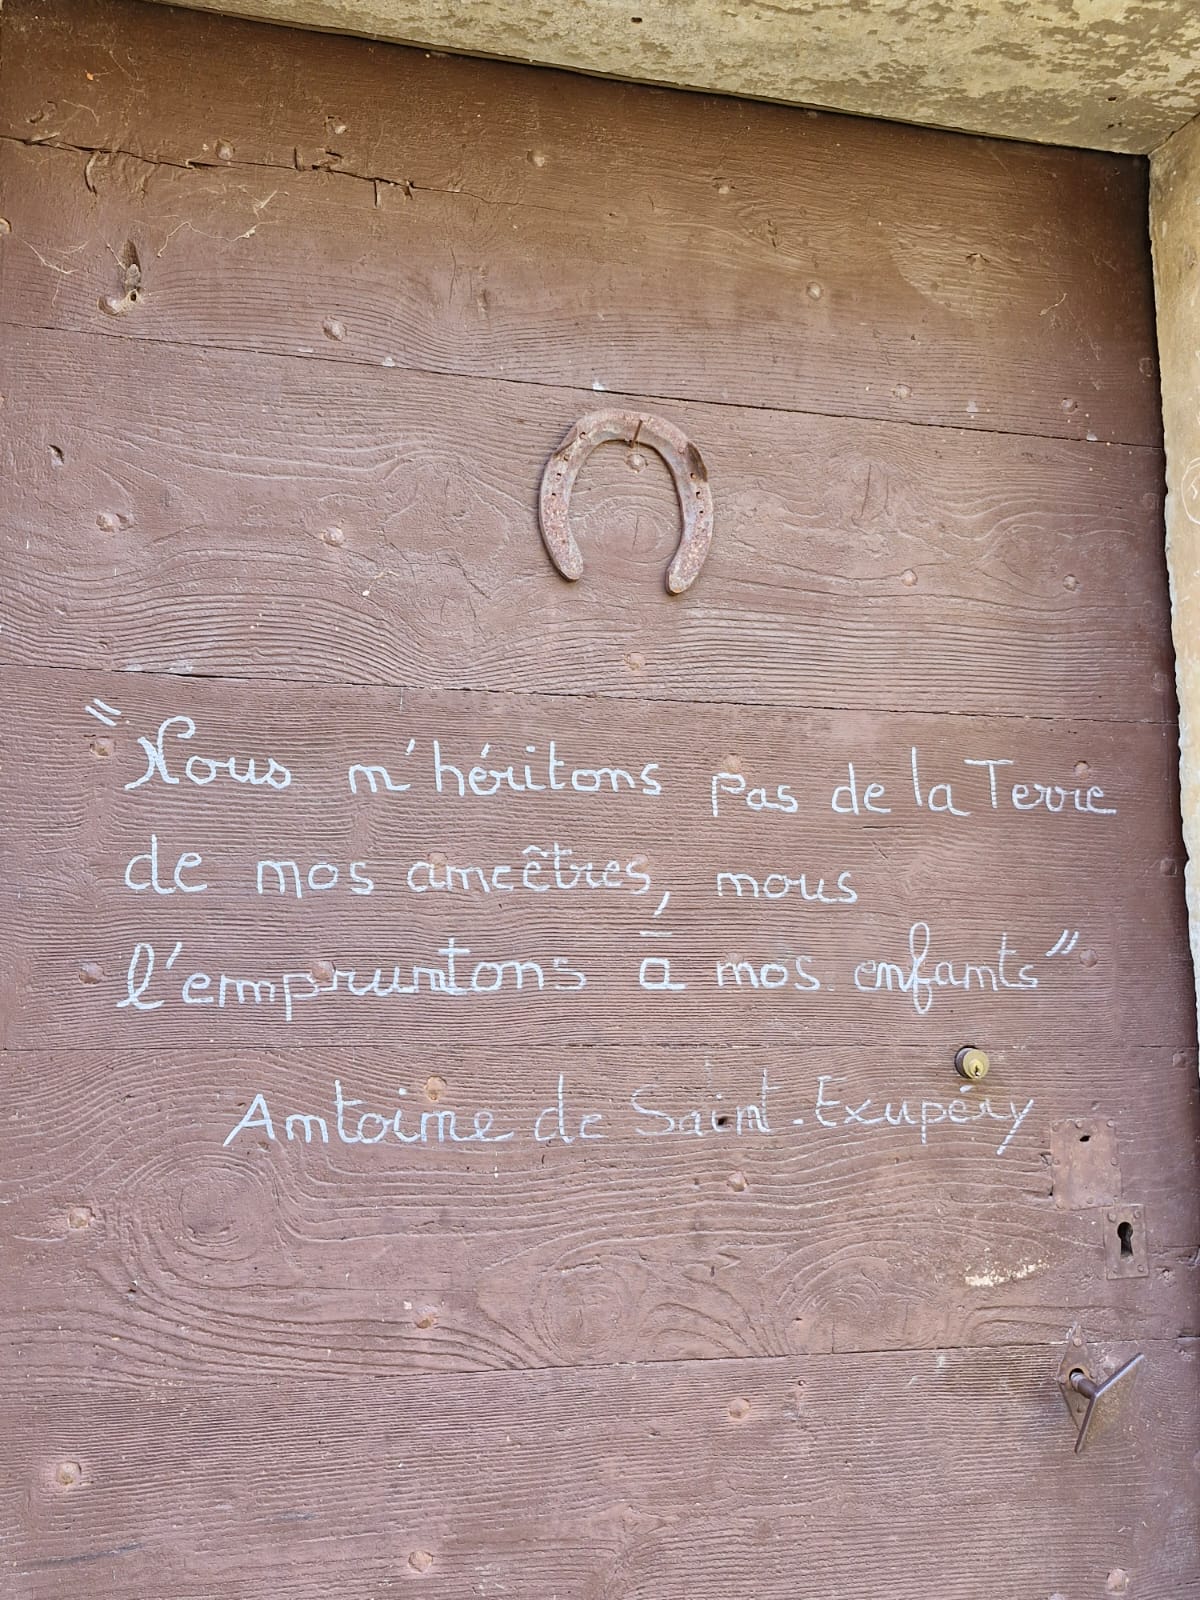 "Nous n'héritons pas de la Terre
de nos ancêtres, nous
l'empruntons à nos enfants"
Antoine de Saint-Exupéry